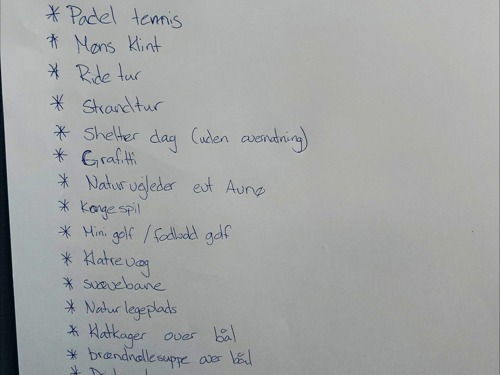 * Padel tennis
* Møns Klint
* Ride tur
* Strandtur
* Shelter dag (uden overnatning)
* Grafitti
* Naturvejleder evt Aunø
* Kongespil
* Mini golf / fodbold golf
* Klatrevæg
* svævebane
* Naturlegeplads
* Klatkager over bål
* brændnællesuppe over bål
*